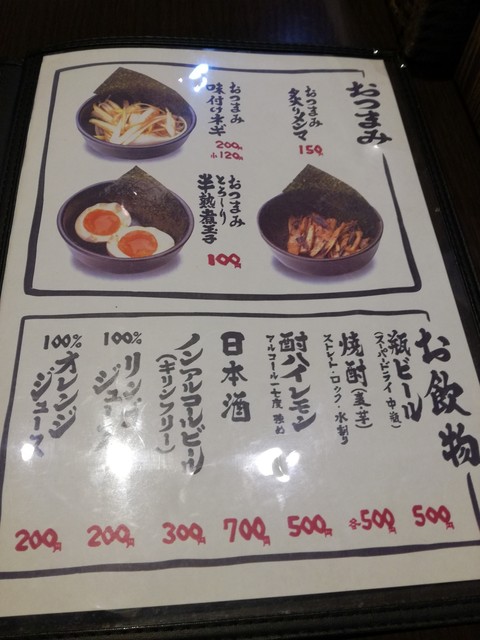 おつまみ
おつまみ
炙りメンマ
150円
おつまみ
味付けネギ
200円
小120円
おつまみ
とろーり
半熟煮玉子
100円
お飲物
瓶ビール
(スーパードライ 中瓶)
500円
焼酎(麦・芋)
ストレート・ロック・水割り
各500円
酎ハイレモン
アルコール一七度 強め
500円
日本酒
700円
ノンアルコールビール
(キリンフリー)
300円
100%
リンゴ
ジュース
200円
100%
オレンジ
ジュース
200円